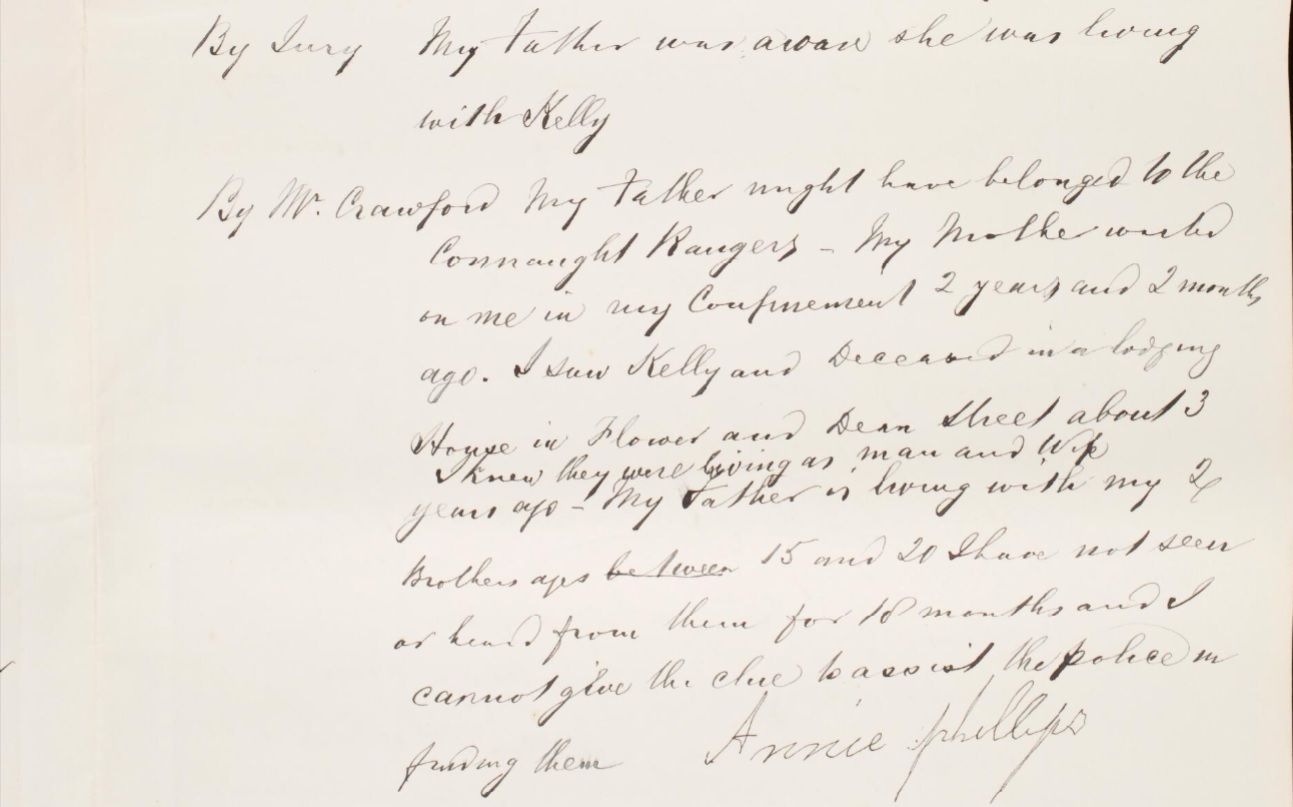 By Jury My Father was aware she was living
with Kelly
By Mr. Crawford My Father might have belonged to the
Connaught Rangers - My Mother waited
on me in my Confinement 2 years and 2 months
ago. I saw Kelly and Deceased in a lodging
House in Flower and Dean Street about 3
I knew they were living as man and Wife
years ago - My Father is living with my 2
Brothers ages between 15 and 20 I have not seen
or heard from them for 18 months and I
cannot give the clue to assist the police in
finding them Annie Phillips